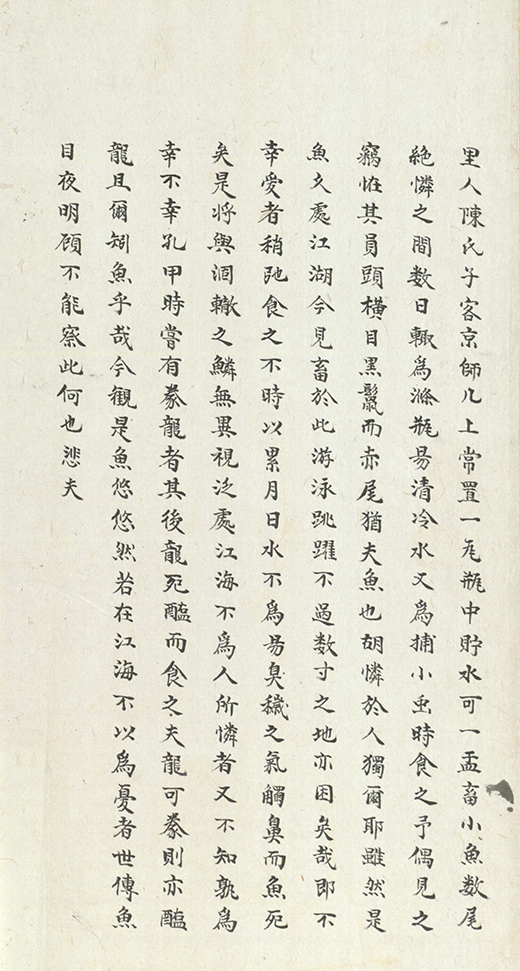 里人陳氏子客京師几上常置一瓦瓶中貯水可一盂畜小魚数尾
絶憐之間数日輙為滌瓶易清冷水又為捕小虫時食之予偶見之
竊恠其員頭横目黒鬣而赤尾猶夫魚也胡憐於人獨爾耶雖然是
魚久處江湖今見畜於此游泳跳躍不過数寸之地亦困矣哉即不
幸愛者稍弛食之不時以累月日水不為易臭穢之氣觸鼻而魚死
矣是将與涸轍之鱗無異視泛處江海不為人所憐者又不知孰為
幸不幸孔甲時嘗有豢龍者其後龍死醢而食之夫龍可豢則亦醢
龍且爾矧魚乎哉今觀是魚悠悠然若在江海不以為憂者世傳魚
目夜明頋不能察此何也悲夫